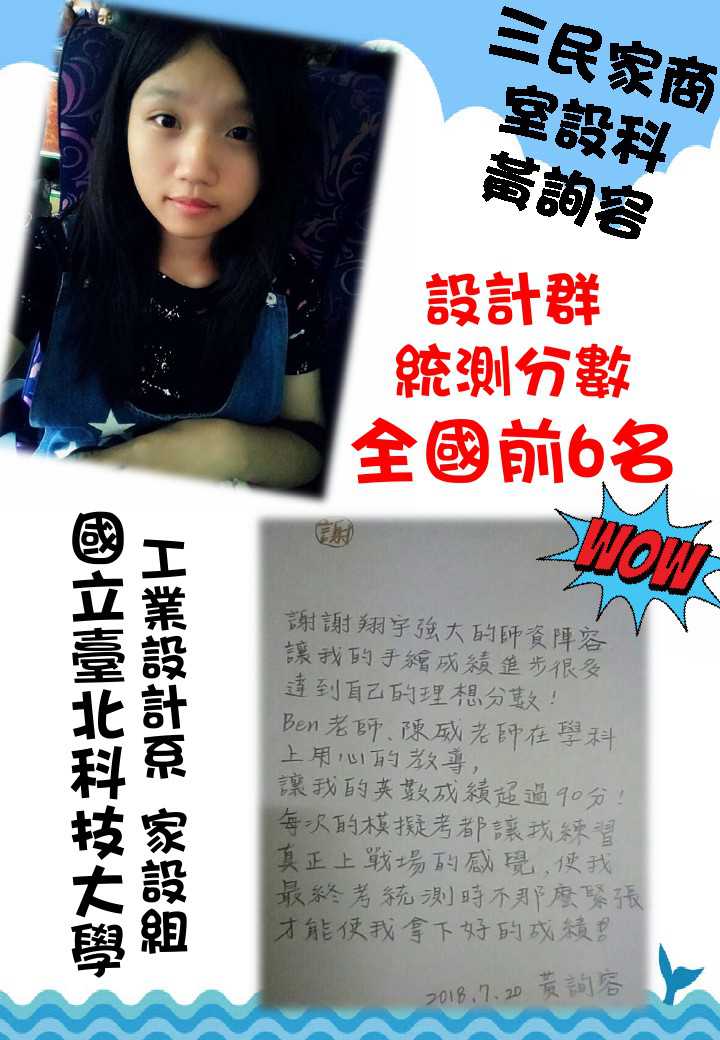 三民家商
室設科
黃詢容
設計群
統測分數
全國前6名
WOW
國立臺北科技大學
工業設計系 家設組
謝
謝謝翔宇強大的師資陣容
讓我的手繪成績進步很多
達到自己的理想分數!
Ben老師、陳威老師在學科
上用心的教導,
讓我的英數成績超過90分!
每次的模擬考都讓我練習
真正上戰場的感覺,使我
最終考統測時不那麼緊張
才能使我拿下好的成績!!
2018.7.20 黃詢容